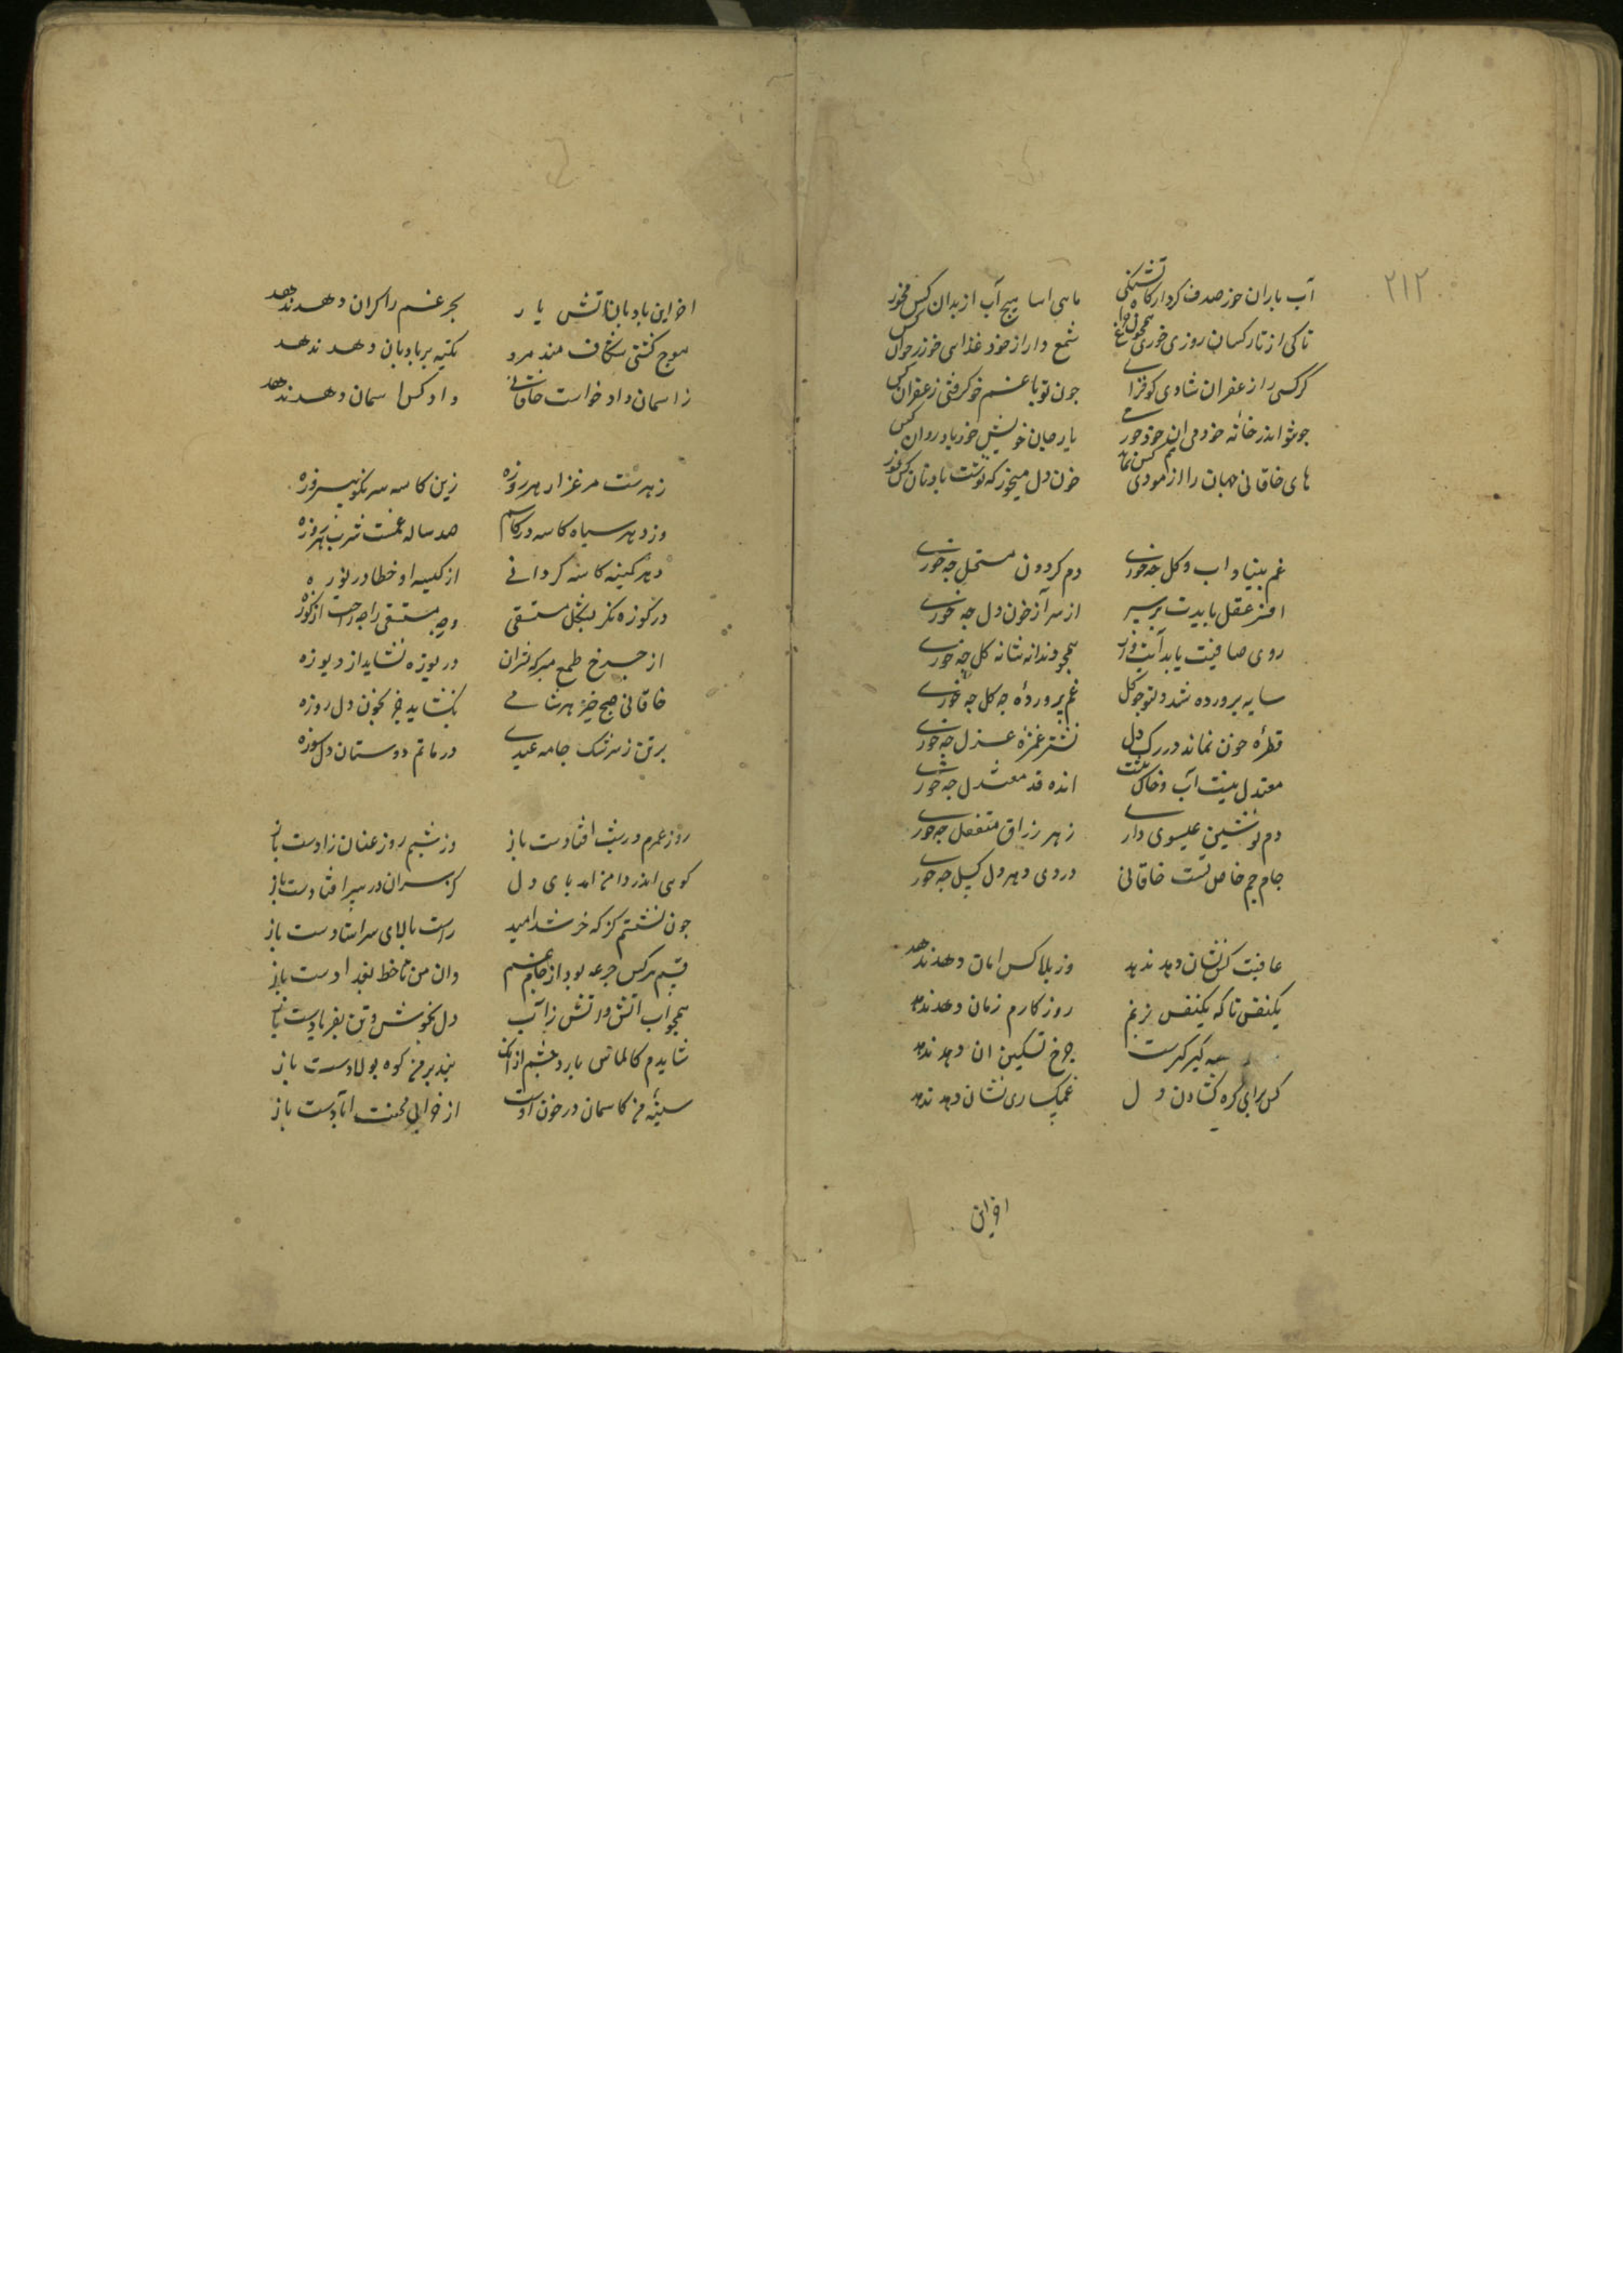 ۲۱۲
آب باران خور صدف کردار کاه تشنگی ماهی اسا هیچ آب از بدان کس مخور
تا کی از تار کسان روزی خوری همچون چراغ شمع دار از خود غذا خور از خوان کس
گر کسی را زعفران شادی کو فزا چون تو با غم خو کرفتی زعفران کس
جو شو اندر خانه خود می خور یا رجان خویش خور یا روان کس
های خاقانی جهان را ازمودی کس نماند خون دل میخور که نوشت باد نان کس مخور
غم بنیاد اب و کل چه خوری دم کردون مستحل چه خوری
افسر عقل بایدت بر سر از سر آز خون دل چه خوری
روی صافیت باید آینه وار همچو دندانه شانه کل چه خوری
سایه پرورده شد دلتو چو کل غم پرورده چکل چه خوری
قطره خون نماند در رک دل نشتر غمزه عزل چه خوری
معتدل نیست آب و خاک تنت انده قد معتدل چه خوری
دم نوشین عیسوی داری زهر زراق منفعل چه خوری
جام جم خاص تست خاقانی دردی دهر دل کسل چه خوری
عافیت کس نشان دهد ندهد وز بلا کس امان دهد ندهد
یکنفس تا که یکنفس بزنم روزکارم زمان دهد ندهد
کیر کیرست چرخ تسکین ان دهد ندهد
کس برای کره کشادن دل غمکساری نشان دهد ندهد
اخر این
اخر این بادبان اتش یار بحر غم را کران دهد ندهد
موج کشتی شکاف بیند مرد تکیه بر بادبان دهد ندهد
ز اسمان داد خواست خاقانی داد کس اسمان دهد ندهد
زهرست مرغزار هر روزه زین کاسه سرنکون پیروزه
وز دهر سیاه کاسه در کاسم صد ساله غمست شرب یکروزه
دهر کمینه کاسه کردانی از کیسه او خطا در یوزه
در کوزه نکر بشکل مستسقی وجه مستسقی را چه راحت از کوزه
از چرخ طمع ببر که نتوان دریوزه نشاید از دریوزه
خاقانی صبح خیز هر شامی نکشاید جز بخون دل روزه
بر تن ز سرشک جامه عیدی در ماتم دوستان دل سوزه
روز عمرم در شب افتادست باز وز شبم روز عنان زادست باز
کوی اندر دامن امد پای دل کز سران در سر افتادست باز
چون نشستم کژ که خر شد امید راست بالای سر استادست باز
قسم هر کس جرعه بود از جام غم وان من تا خط بغدادست باز
همچو آب اتش و اتش ز آب دل بخوش و تن بفریادست باز
شایدم کالماس بارد چشم از انک بند بر من کوه پولادست باز
سینه من کاسمان در خون اوست از خرابی محنت ابادست باز